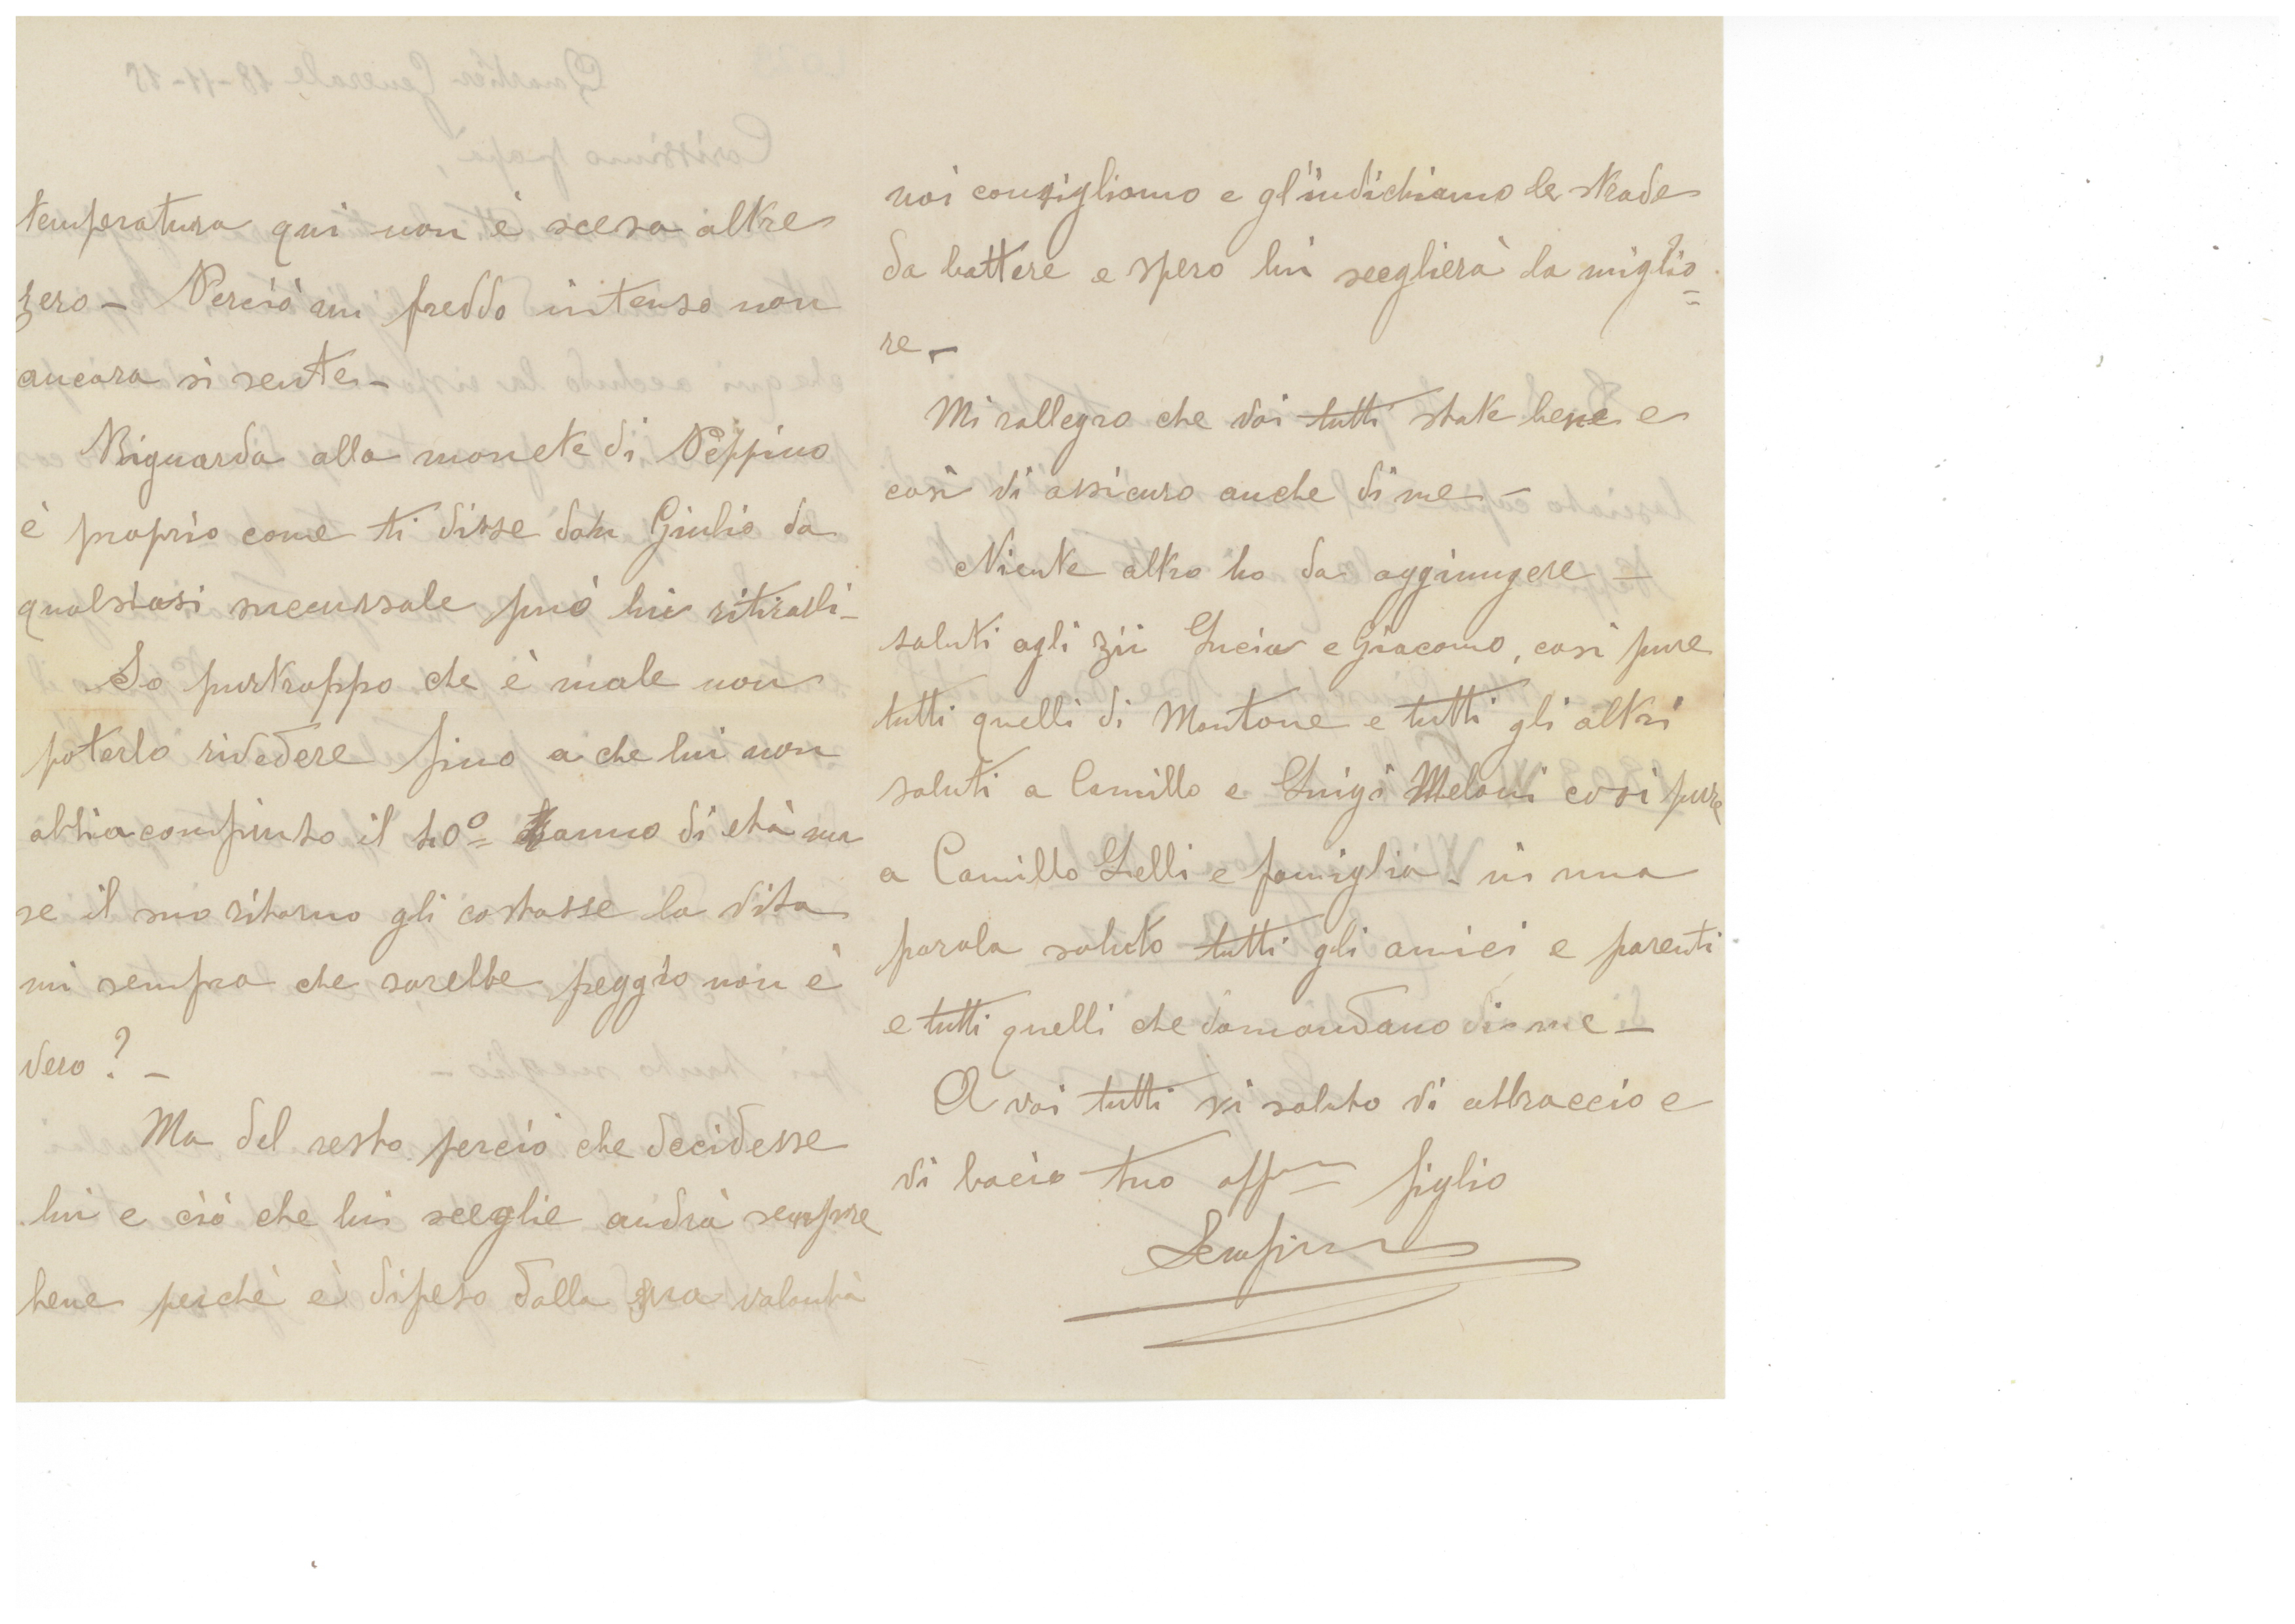 temperatura qui non è scesa oltre
zero – Perciò un freddo intenso non
ancora si sente –
Riguarda alla monete di Peppino
è proprio come ti disse don Giulio da
qualsiasi succursale può lui ritirarli –
So purtroppo che è male non
poterlo rivedere fino a che lui non
abbia compiuto il 40º = anno di età ma
se il suo ritorno gli costasse la vita
mi sempra che sarebbe peggio non è
vero? –
Ma del resto perciò che decidesse
lui e ciò che lui sceglie andrà sempre
bene perchè è dipeso dalla sua volontà
noi consigliamo e gl'indichiamo le strade
da battere e spero lui sceglierà la miglio=
re –
Mi rallegro che voi tutti state bene e
così vi assicuro anche di me –
Niente altro ho da aggiungere –
saluti agli zii Lucia e Giacomo, così pure
tutti quelli di Montone e tutti gli altri
saluti a Camillo e Luigi Meloni così pure
a Camillo Lelli e famiglia – in una
parola saluto tutti gli amici e parenti
e tutti quelli che domandano di me –
A voi tutti vi saluto vi abbraccio e
vi bacio tuo aff.mo figlio
Serafino